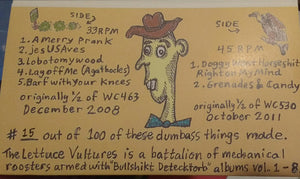 SIDE
33RPM
1. A Merry Prank
2. jesUSAves
3. Lobotomywood
4. Lay off Me (Agathocles)
5. Barf with Your Knees
originally 1/2 of WC463
December 2008
SIDE
45RPM
1. Doggy Horseshit
Right on My Mind
2. Grenades & Candy
originally 1/2 of WC530
October 2011
# 15 out of 100 of these dumbass things made.
The Lettuce Vultures is a battalion of mechanical
roosters armed with "Bullshikt Detecktorb" albums vol. 1-8